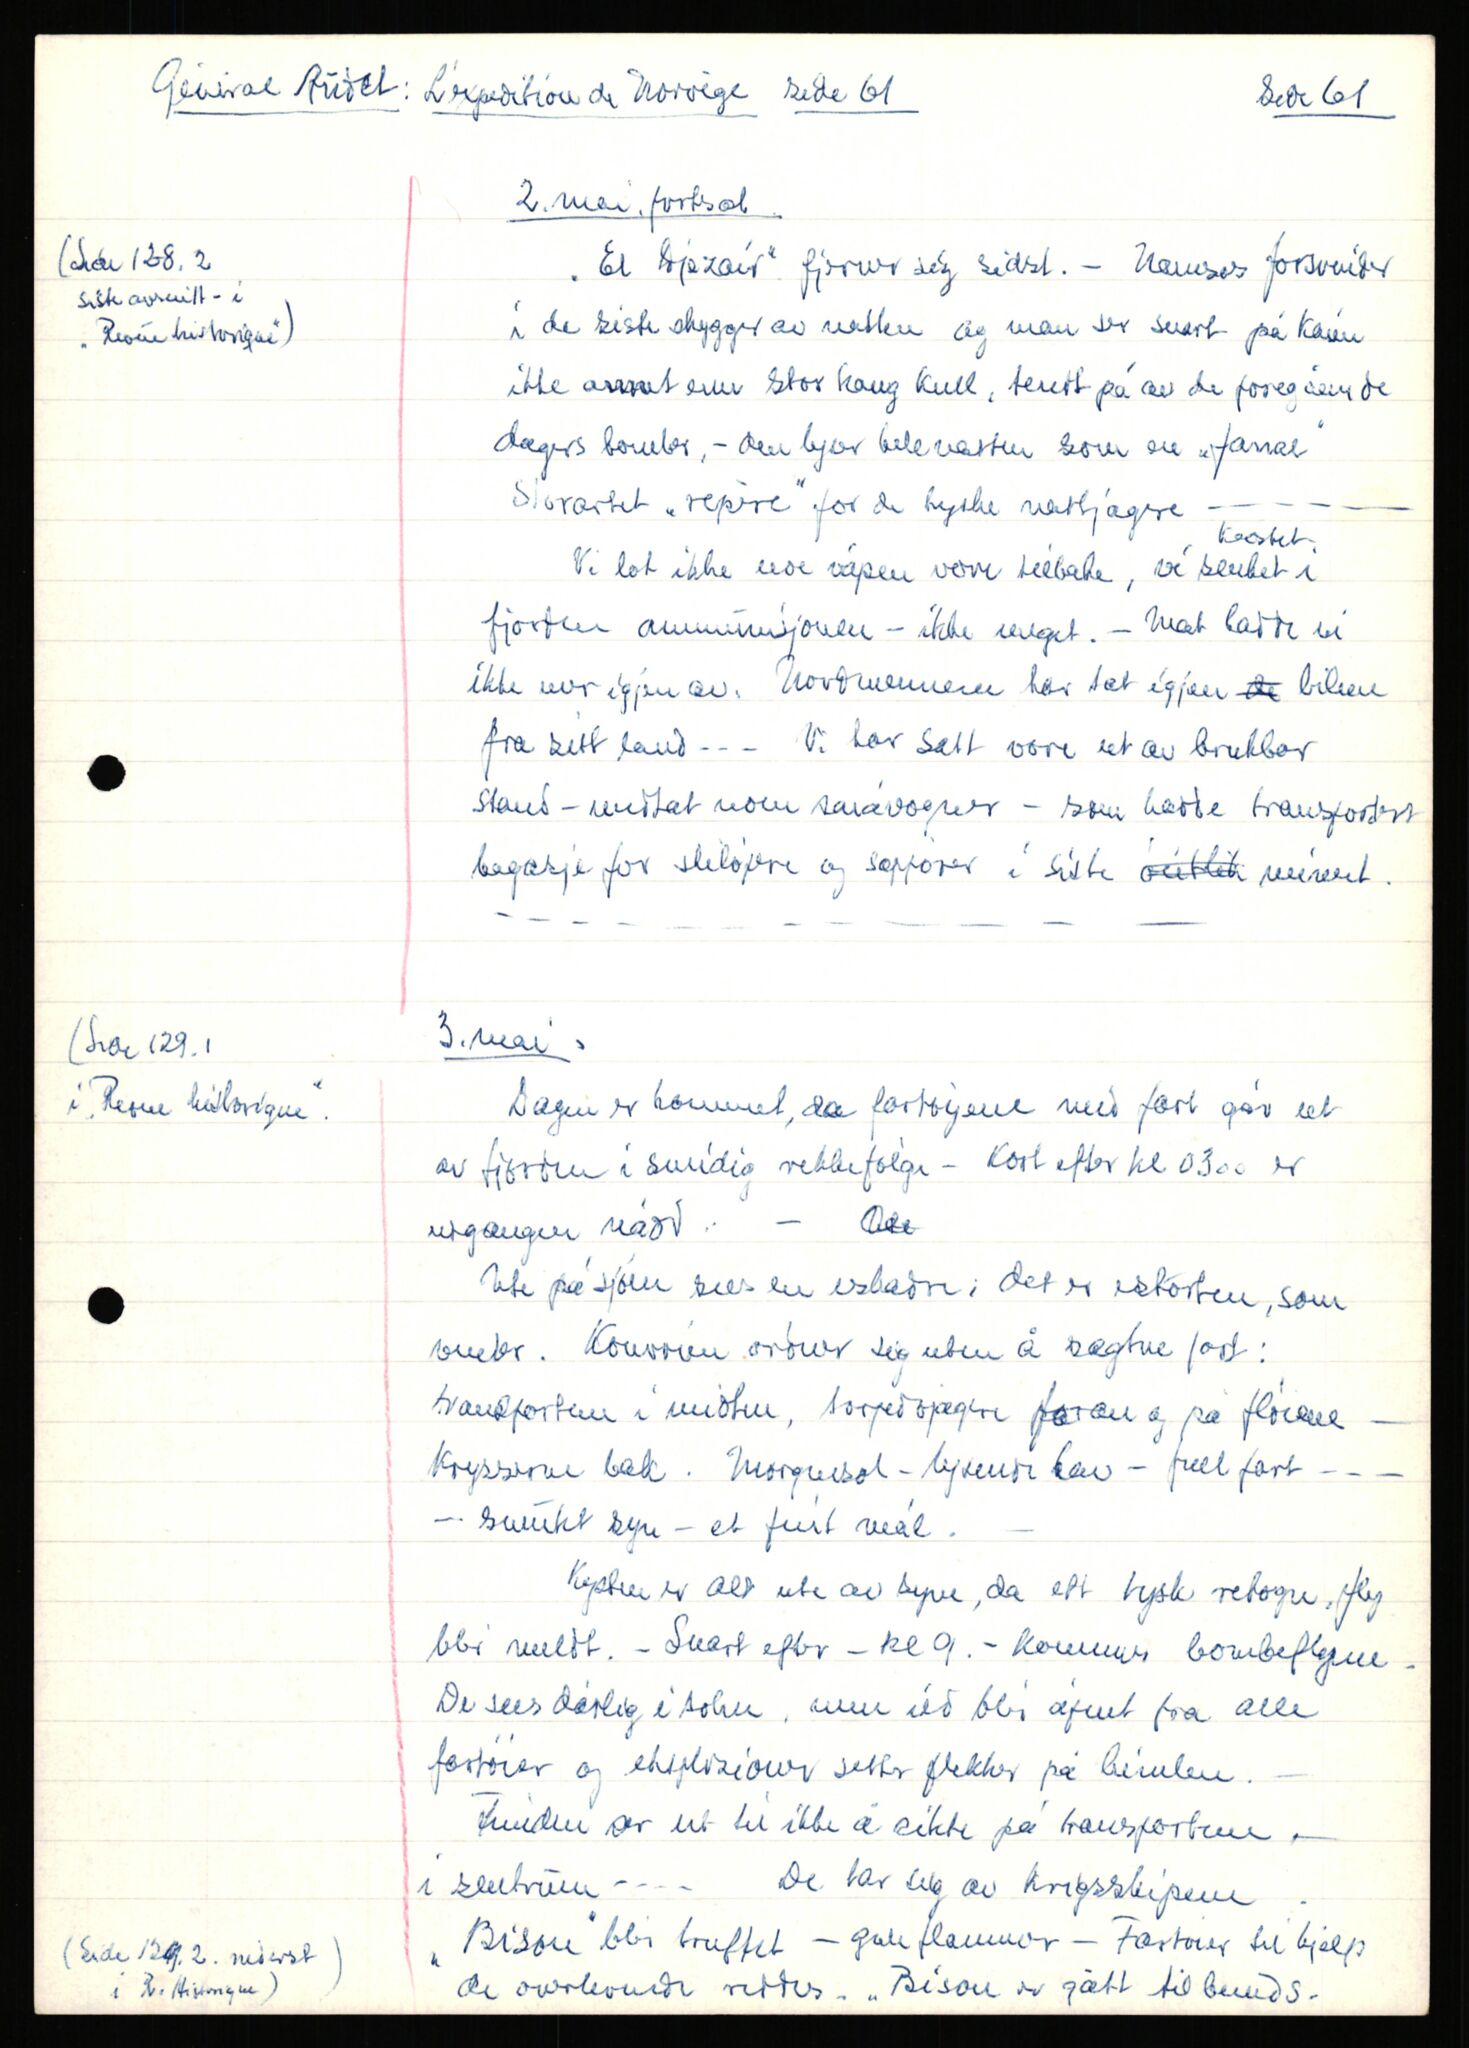 Général Audet: L'expedition de Norvège side 61
Side 61
2. mai. fortsat.
(Side 128.2
siste avsnitt - i
"Revue historique")
"El Djezair" fjerner sig sidst. - Namsos forsvinder
i de siste skygger av natten og man ser snart på kaien
ikke annet enn stor haug kull, tendt på av de foregående
dagers bomber, - den lyser hele natten som en "fanal"
Storartet "repère" for de tyske nattjagere - - - - -
kastet
Vi lot ikke noe våpen være tilbake, vi senket i
fjorden ammunisjonen - ikke meget. - Mat hadde vi
ikke mer igjen av. Nordmennene har tat igjen de bilene
fra sitt land - - - Vi har satt våre ut av brukbar
stand - undtat noen småvogner - som hadde transportert
bagasje for skiløpere og sappører i siste minut.
- - - - - - - - - - -
(Side 129.1
i "Revue historique".
3. mai.
Dagen er kommet, da fartøyene med fart går ut
av fjorden i smidig rekkefølge - Kort efter kl 0300 er
utgangen nådd. - De
Ute på sjøen sees en eskadre; det er eskorten, som
venter. Konvoien ordner sig uten å sagtne fart:
transportene i midten, torpedojagere foran og på fløiene -
Krysserne bak. Morgensol - lysende hav - full fart - - -
- smukt syn - et fint mål. -
Kysten er alt ute av syne, da ett tysk rekogn. fly
blir meldt. - Snart efter - kl 9. - kommer bombeflyene.
De sees dårlig i solen, men ild blir åpnet fra alle
fartøier og eksplosioner setter flekker på himlen. -
Fienden ser ut til ikke å sikte på transportene -
i sentrum - - - - De tar sig av krigsskipene.
(Side 129.2. nederst
i R. Historique)
"Bison" blir truffet - gule flammer - Fartøier til hjelp
de overlevende reddes. "Bison er gått tilbunds.